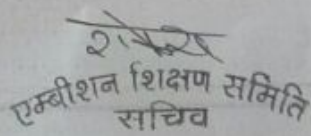 एम्बीशन शिक्षण समिति
सचिव